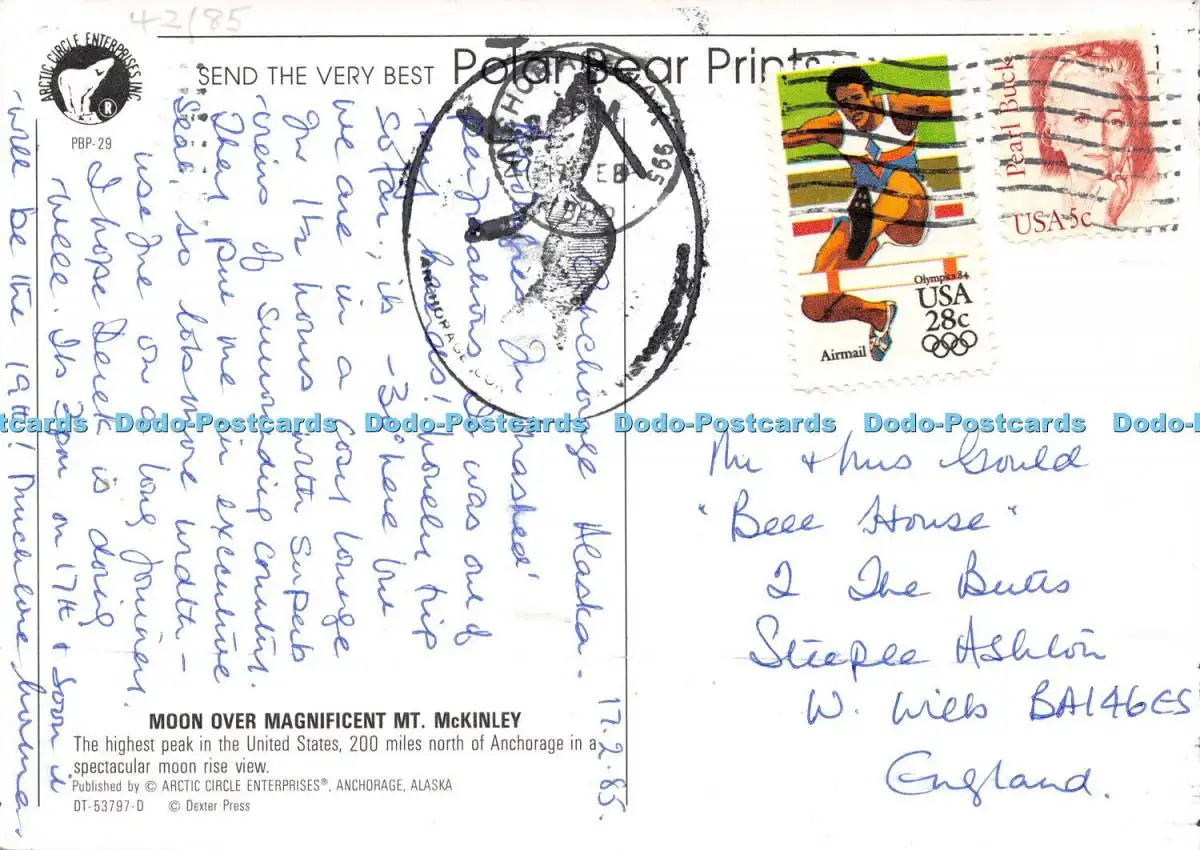 42/85
ARCTIC CIRCLE ENTERPRISES INC.
®
PBP-29
SEND THE VERY BEST
Polar Bear Prints
Anchorage Alaska.
17.2.85.
was one of
hours! Lovely trip
so far; its -30° here but
we are in a lounge
for 1½ hours with superb
views of surrounding country.
They put me in executive
seat, so lots more width –
use for on a long journey.
I hope Derek is doing
well. Its 3pm on 17th & soon it
will be the 19th! Much love
MOON OVER MAGNIFICENT MT. McKINLEY
The highest peak in the United States, 200 miles north of Anchorage in a
spectacular moon rise view.
Published by © ARCTIC CIRCLE ENTERPRISES®, ANCHORAGE, ALASKA
DT-53797-D © Dexter Press
ANCHORAGE
Olympics 84
USA
28c
Airmail
Pearl Buck
USA 5c
Mr & Mrs Gould
"Bell House"
2 The Butts
Steeple Ashton
W. Wilts BA146ES
England.
Dodo-Postcards Dodo-Postcards Dodo-Postcards Dodo-Postcards